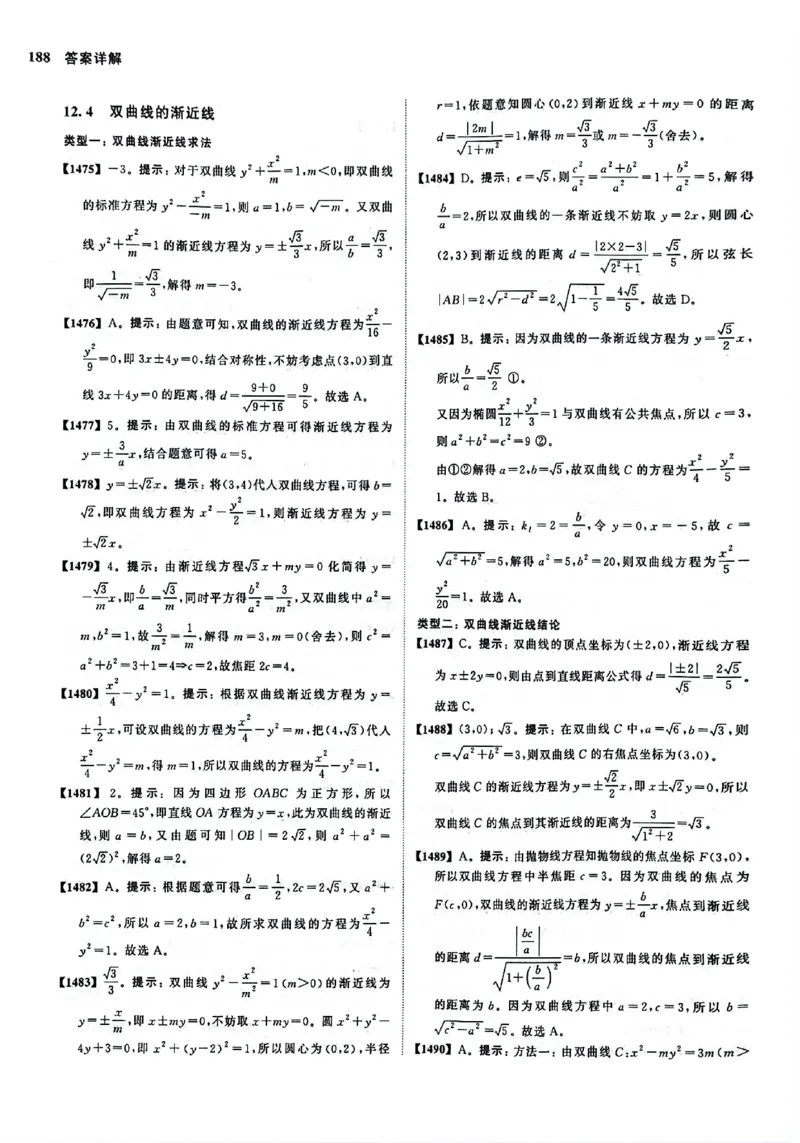 188 答案详解
12.4 双曲线的渐近线
类型一：双曲线渐近线求法
【1475】-3。提示：对于双曲线 y²+x²/m=1,m<0,即双曲线
的标准方程为 y²-x²/(-m)=1,则 a=1,b=√(-m)。又双曲
线 y²+x²/m=1 的渐近线方程为 y=±(√3/3)x,所以 a/b=√3/3,
即 1/√(-m)=√3/3,解得 m=-3。
【1476】A。提示：由题意可知,双曲线的渐近线方程为 x²/16-
y²/9=0,即 3x±4y=0,结合对称性,不妨考虑点(3,0)到直
线 3x+4y=0 的距离,得 d=(9+0)/√(9+16)=9/5。故选 A。
【1477】5。提示：由双曲线的标准方程可得渐近线方程为
y=±(3/a)x,结合题意可得 a=5。
【1478】y=±√2x。提示：将(3,4)代人双曲线方程,可得 b=
√2,即双曲线方程为 x²-y²/2=1,则渐近线方程为 y=
±√2x。
【1479】4。提示：由渐近线方程√3x+my=0 化简得 y=
-(√3/m)x,即 b/a=√3/m,同时平方得 b²/a²=3/m²,又双曲线中 a²=
m,b²=1,故 3/m²=1/m,解得 m=3,m=0(舍去),则 c²=
a²+b²=3+1=4⇒c=2,故焦距 2c=4。
【1480】x²/4-y²=1。提示：根据双曲线渐近线方程为 y=
±(1/2)x,可设双曲线的方程为 x²/4-y²=m,把(4,√3)代人
x²/4-y²=m,得 m=1,所以双曲线的方程为 x²/4-y²=1。
【1481】2。提示：因为四边形 OABC 为正方形,所以
∠AOB=45°,即直线 OA 方程为 y=x,此为双曲线的渐近
线,则 a=b,又由题可知|OB|=2√2,则 a²+a²=
(2√2)²,解得 a=2。
【1482】A。提示：根据题意可得 b/a=1/2,2c=2√5,又 a²+
b²=c²,所以 a=2,b=1,故所求双曲线的方程为 x²/4-
y²=1。故选 A。
【1483】√3/3。提示：双曲线 y²-x²/m²=1(m>0)的渐近线为
y=±x/m,即 x±my=0,不妨取 x+my=0。圆 x²+y²-
4y+3=0,即 x²+(y-2)²=1,所以圆心为(0,2),半径
r=1,依题意知圆心(0,2)到渐近线 x+my=0 的距离
d=|2m|/√(1+m²)=1,解得 m=√3/3或 m=-√3/3(舍去)。
【1484】D。提示：e=√5,则 c²/a²=(a²+b²)/a²=1+b²/a²=5,解得
b/a=2,所以双曲线的一条渐近线不妨取 y=2x,则圆心
(2,3)到渐近线的距离 d=|2×2-3|/√(2²+1)=√5/5,所以弦长
|AB|=2√(r²-d²)=2√(1-1/5)=4√5/5。故选 D。
【1485】B。提示：因为双曲线的一条渐近线方程为 y=(√5/2)x,
所以 b/a=√5/2 ①。
又因为椭圆 x²/12+y²/3=1 与双曲线有公共焦点,所以 c=3,
则 a²+b²=c²=9 ②。
由①②解得 a=2,b=√5,故双曲线 C 的方程为 x²/4-y²/5=
1。故选 B。
【1486】A。提示：kₗ=2=b/a,令 y=0,x=-5,故 c=
√(a²+b²)=5,解得 a²=5,b²=20,则双曲线方程为 x²/5-
y²/20=1。故选 A。
类型二：双曲线渐近线结论
【1487】C。提示：双曲线的顶点坐标为(±2,0),渐近线方程
为 x±2y=0,则由点到直线距离公式得 d=|±2|/√5=2√5/5。
故选 C。
【1488】(3,0)；√3。提示：在双曲线 C 中,a=√6,b=√3,则
c=√(a²+b²)=3,则双曲线 C 的右焦点坐标为(3,0)。
双曲线 C 的渐近线方程为 y=±(√2/2)x,即 x±√2y=0,所以
双曲线 C 的焦点到其渐近线的距离为 3/√(1²+2)=√3。
【1489】A。提示：由抛物线方程知抛物线的焦点坐标 F(3,0),
所以双曲线方程中半焦距 c=3。因为双曲线的焦点为
F(c,0),双曲线的渐近线方程为 y=±(b/a)x,焦点到渐近线
的距离 d=|bc/a|/√(1+(b/a)²)=b,所以双曲线的焦点到渐近线
的距离为 b。因为双曲线方程中 a=2,c=3,所以 b=
√(c²-a²)=√5。故选 A。
【1490】A。提示：方法一：由双曲线 C:x²-my²=3m(m>